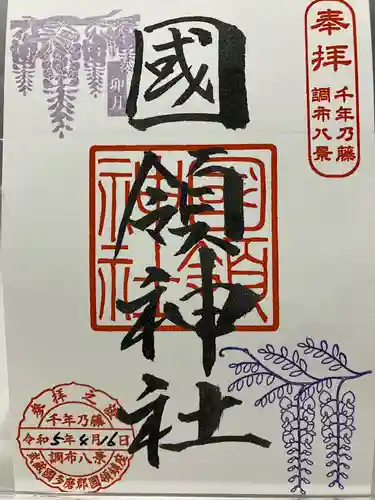 奉拝
千年乃藤
調布八景
卯月
國領神社
國領
神社
参拝之証
千年乃藤
令和5年4月16日
調布八景
武蔵國多磨郡國領鎮座